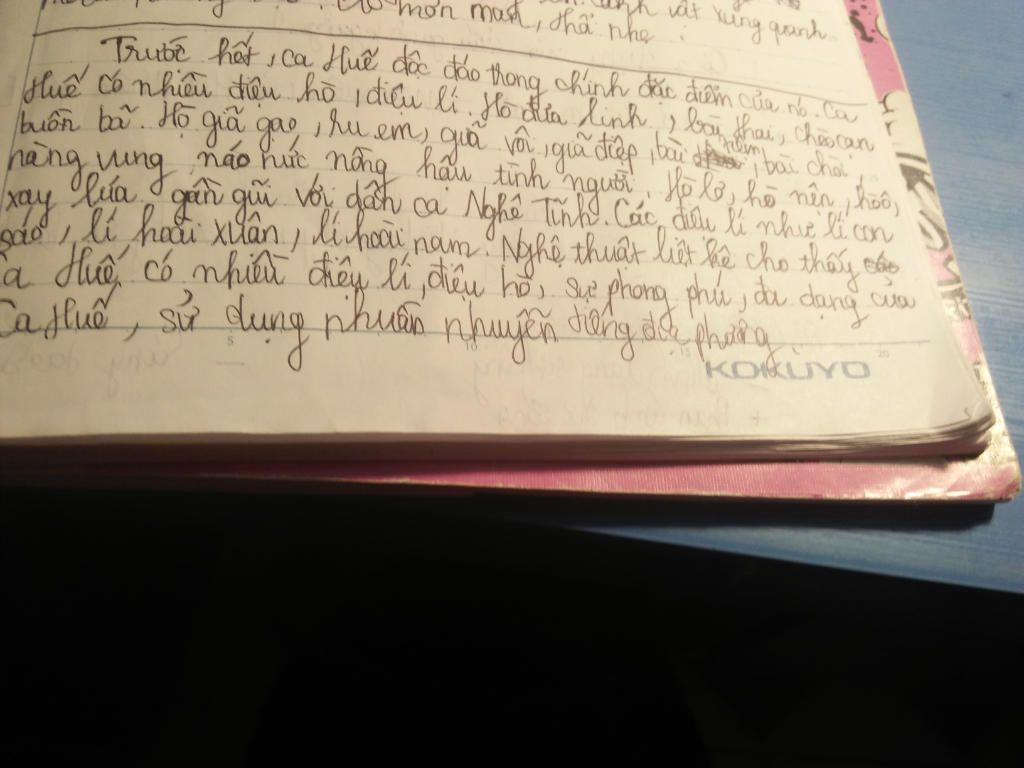 mơn man, thả nhẹ . cảnh vật xung quanh
Trước hết, ca Huế độc đáo trong chính đặc điểm của nó. Ca
Huế có nhiều điệu hò, điệu lí. Hò đưa linh, bài thai, chèo cạn
buồn bã. Hò giã gạo, ru em, giã vôi, giã điệp, bài tiệm, bài chòi,
nàng vung náo nức nồng hậu tình người. Hò lơ, hò nện, hò ô,
xay lúa gần gũi với dân ca Nghệ Tĩnh. Các điệu lí như lí con
sáo, lí hoài xuân, lí hoài nam. Nghệ thuật liệt kê cho thấy
Ca Huế có nhiều điệu lí, điệu hò, sự phong phú, đa dạng của
Ca Huế, sử dụng nhuần nhuyễn tiếng địa phương
5 10 15 20
KOKUYO